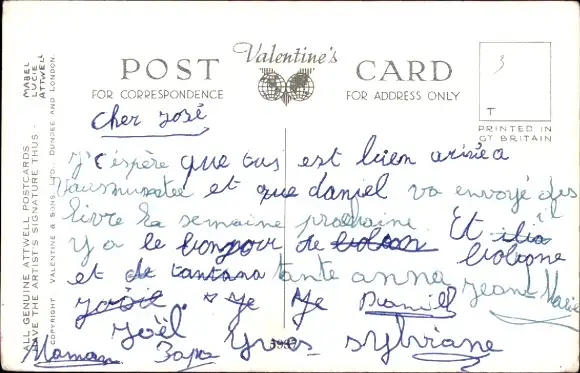 POST Valentine's CARD
FOR CORRESPONDENCE
FOR ADDRESS ONLY
T
PRINTED IN
GT BRITAIN
MABEL
LUCIE
ATTWELL
ALL GENUINE ATTWELL POSTCARDS
HAVE THE ARTIST'S SIGNATURE THUS:-
COPYRIGHT VALENTINE & SONS LTD. DUNDEE AND LONDON.
Cher José
J'éspère que tus est bien arivée a
et que daniel va envoyé des
livre la semaine prochaine. Et il
y a le bonjour de bologne
et de tantana tante anna Jean Marie
Josie Je Je Daniel
Joël
Maman Papa Yves Sylviane